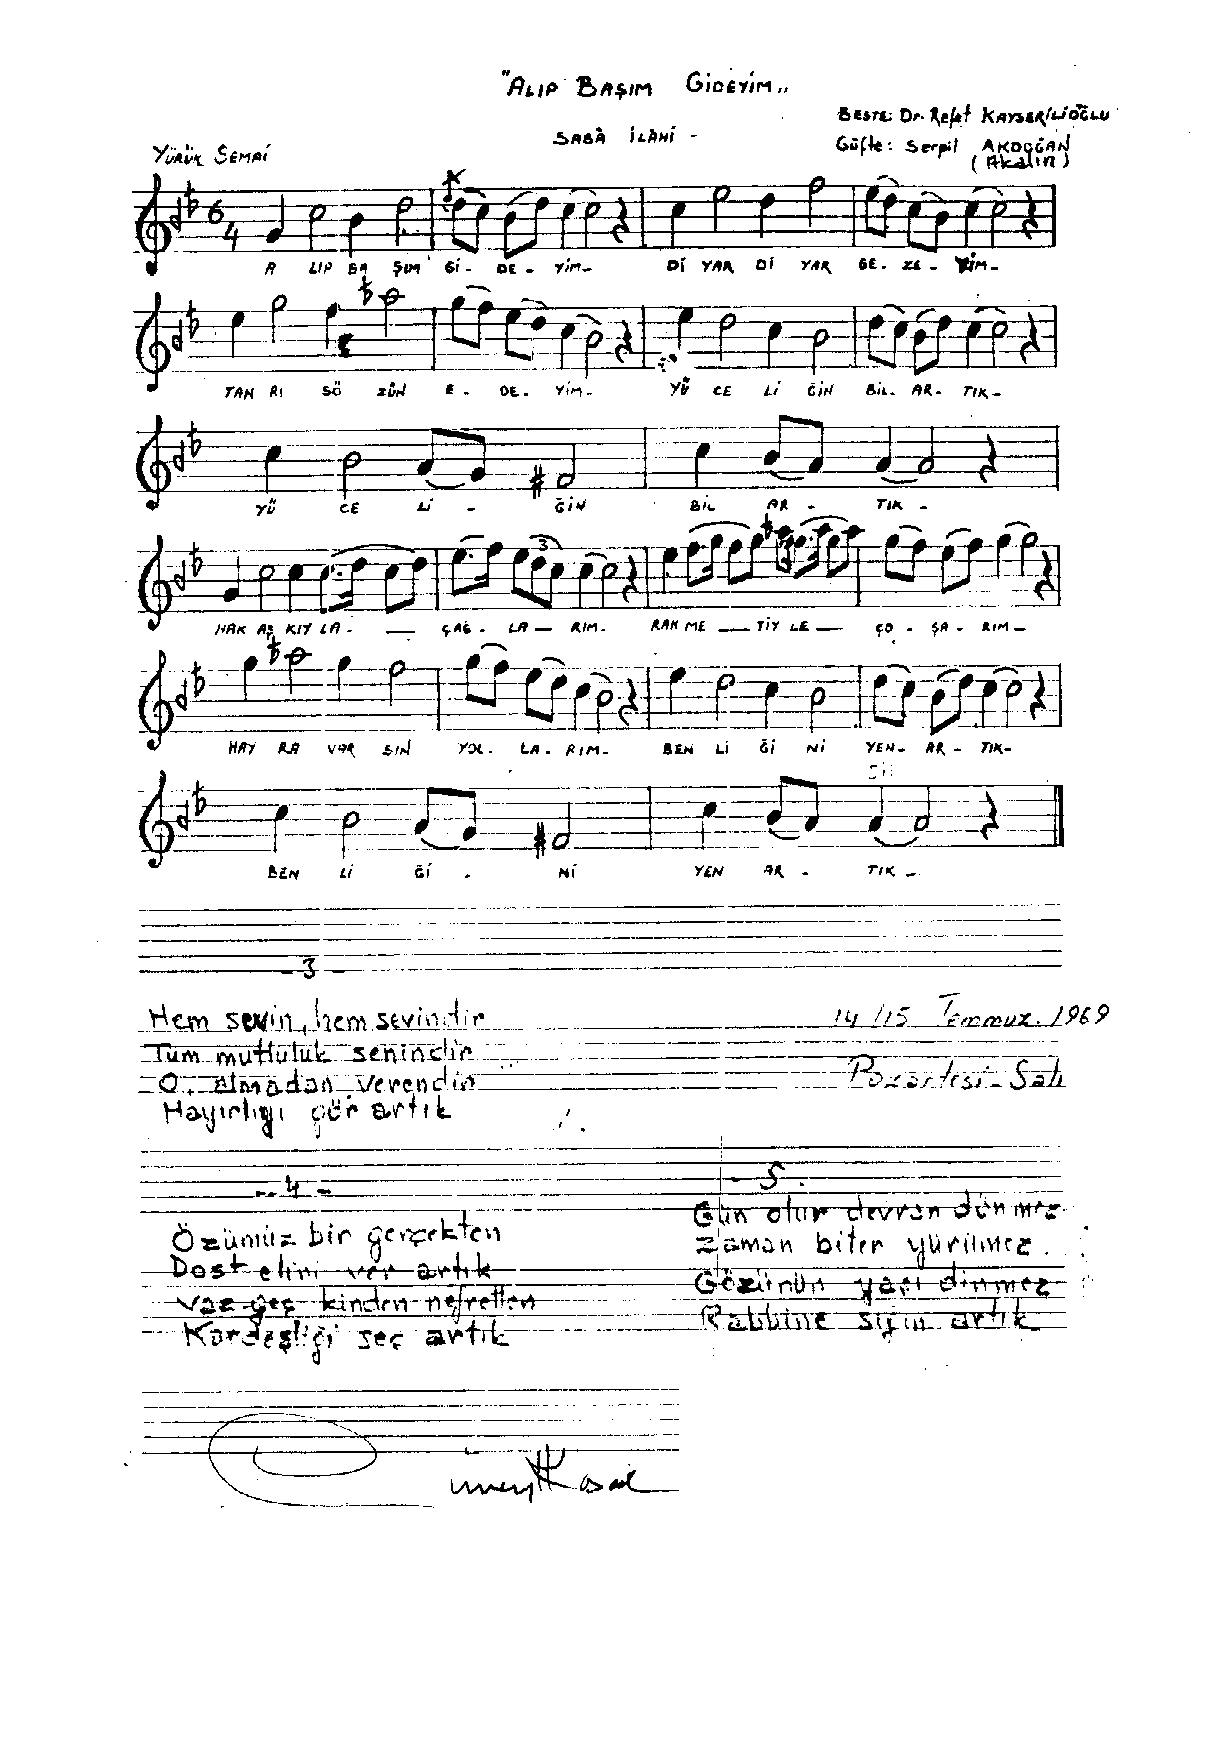 "ALIP BAŞIM GİDEYİM"
BESTE: Dr. Refet KAYSERİLİOĞLU
SABÂ İLÂHİ -
Güfte: Serpil AKDOĞAN
(Akalın)
YÜRÜK SEMAİ
6
4
A LIP BA ŞIM Gİ- DE- YİM- Dİ YAR Dİ YAR GE- ZE- YİM-
TAN RI SÖ ZÜN E- DE- YİM- YÜ CE Lİ ĞİN BİL- AR- TIK-
YÜ CE Lİ - ĞİN BİL AR - TIK -
3
HAK AŞ KIY LA- — ÇAĞ- LA— RIM- RAH ME — TİY LE — ÇO- ŞA- RIM-
HAY RA VAR SIN YOL- LA- RIM- BEN Lİ Ğİ Nİ YEN- AR- TIK-
BEN Lİ Ğİ - Nİ YEN AR - TIK -
- 3 -
Hem sevin, hem sevindir
Tüm mutluluk senindir
O, almadan verendin
Hayırlıyı gör artık
14/15 Temmuz. 1969
Pazartesi - Salı
- 4 -
Özümüz bir gerçekten
Dost elini ver artık
Vaz geç kinden nefretten
Kardeşliği seç artık
- 5 -
Gün olur devran dönmez
Zaman biter yürümez.
Gözünün yaşı dinmez
Rabbine sığın artık